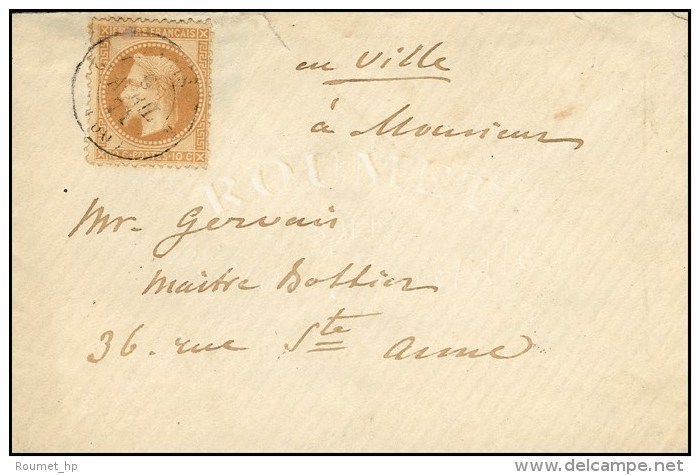 EMPIRE FRANCAIS
POSTES 10 C
en Ville
à Monsieur
ROUMET
Mr. Gervais
Maitre Bottier
36. rue Ste Anne
Roumet_hp
www.delcampe.net